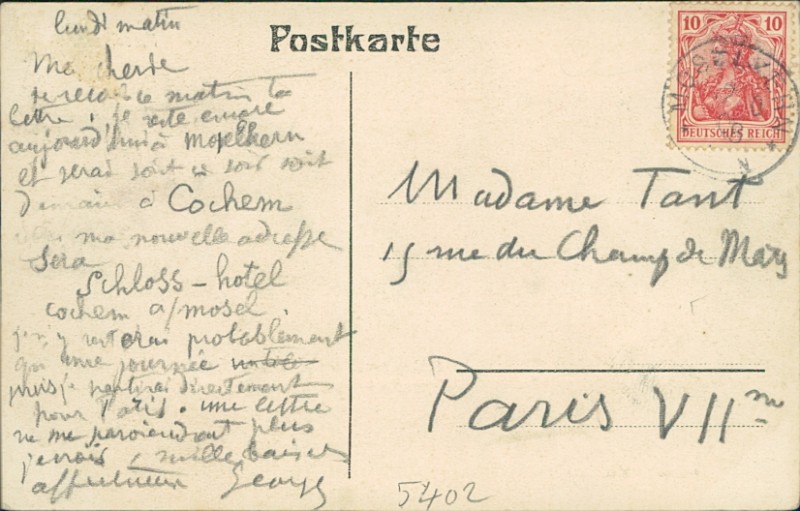 lundi matin
Postkarte
10 10
DEUTSCHES REICH
Ma cherie
je recois ce matin ta
lettre, je reste encore
aujourd'hui à Moselkern
et serai soit ce soir soit
demain à Cochem
ma nouvelle adresse
sera
Schloss-hotel
Cochem a/mosel.
j'n'y resterai probablement
qu'une journée
puis je partirai directement
pour Paris. une lettre
ne me parviendrait plus
je crois, mille baisers
affectueux Georges
Madame Tant
15 rue du Champ de Mars
Paris VIIme
5402